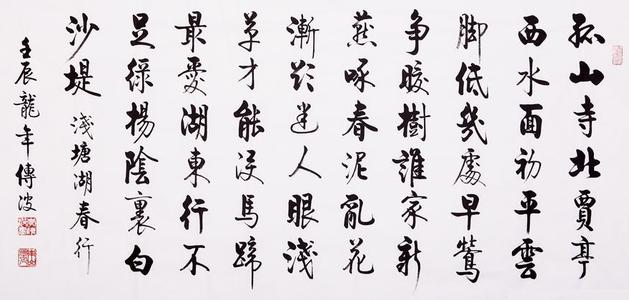 孤山寺北賈亭
西水面初平雲
脚低幾處早鶯
争暖樹誰家新
燕啄春泥亂花
漸欲迷人眼淺
草才能没馬蹄
最愛湖東行不
足綠楊陰裏白
沙堤 淺塘湖春行
壬辰龍年傳波